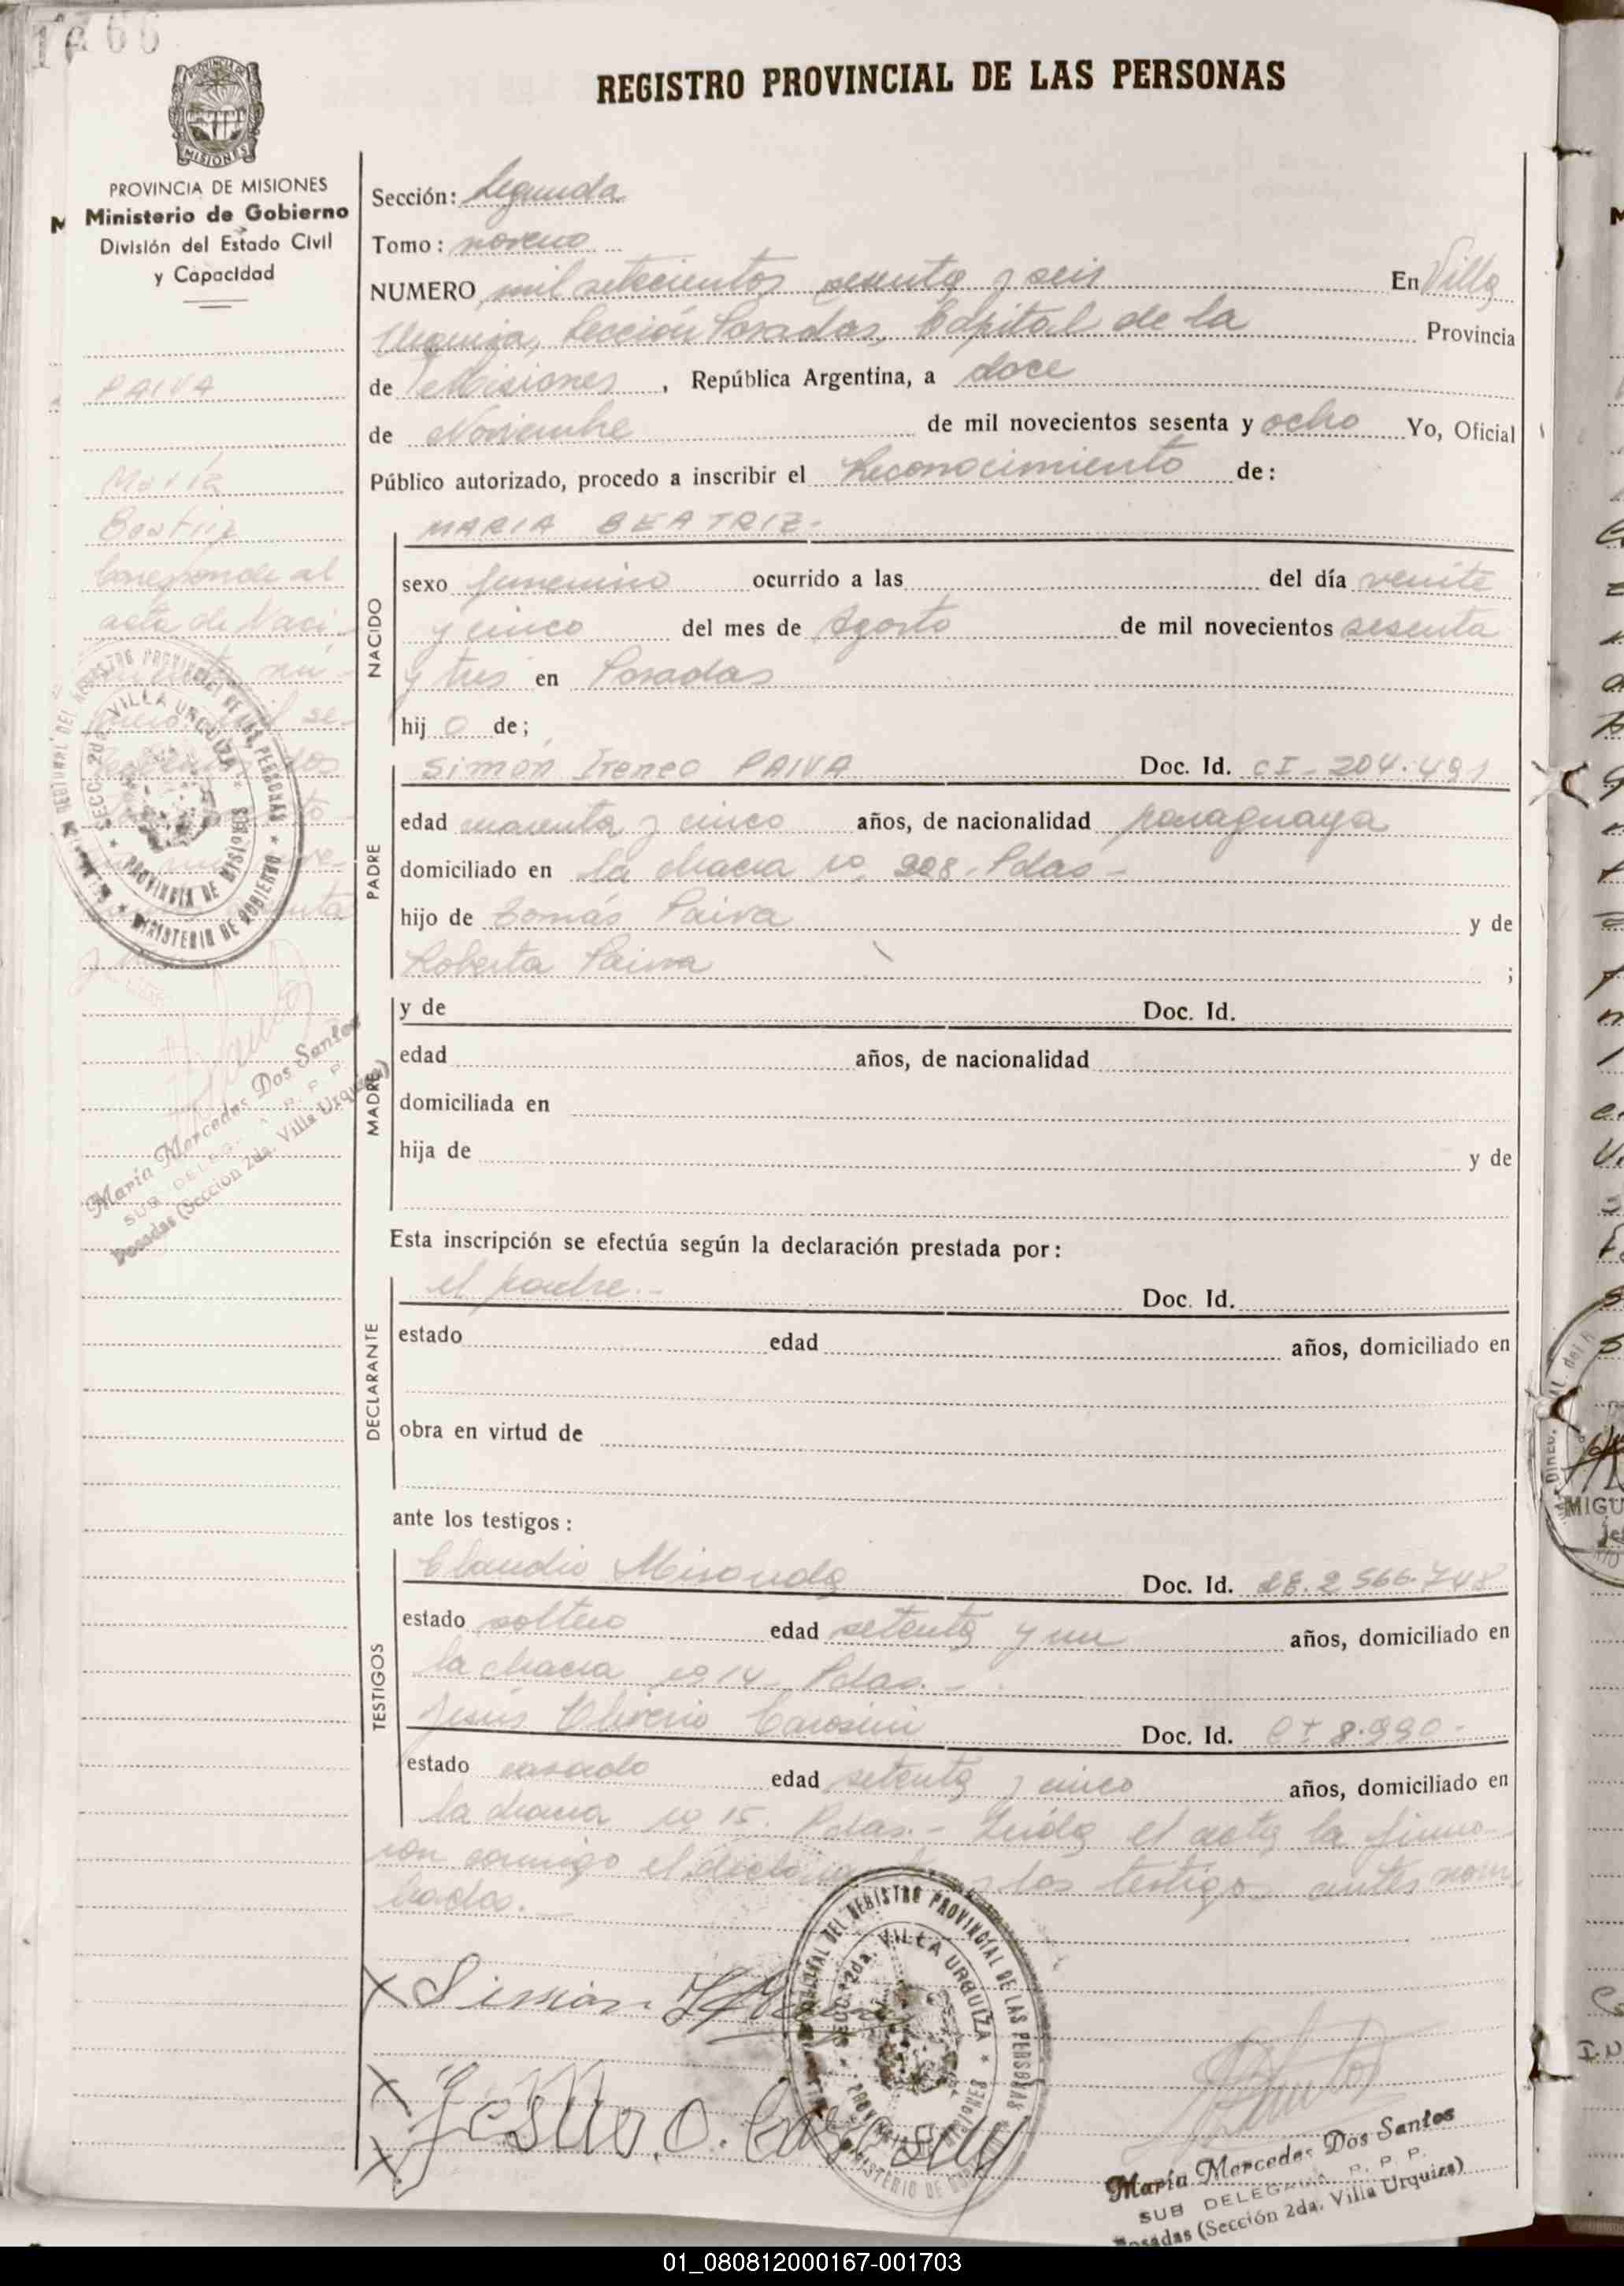 1766
REGISTRO PROVINCIAL DE LAS PERSONAS
PROVINCIA DE MISIONES
Ministerio de Gobierno
División del Estado Civil
y Capacidad
PAIVA
María
Beatriz
Corresponde al
acta de Naci-
Sección: Segunda
Tomo: noveno
NUMERO mil setecientos sesenta y seis En Villa
Urquiza, Sección Posadas, Capital de la Provincia
de Misiones, República Argentina, a doce
de Noviembre de mil novecientos sesenta y ocho Yo, Oficial
Público autorizado, procedo a inscribir el Reconocimiento de:
NACIDO
MARIA BEATRIZ.-
sexo femenino ocurrido a las del día veinte
y cinco del mes de Agosto de mil novecientos sesenta
y tres en Posadas
hij o de;
PADRE
Simón Ireneo PAIVA Doc. Id. CI- 204.491
edad cuarenta y cinco años, de nacionalidad paraguaya
domiciliado en la chacra no. 228. Pdas-
hijo de Tomás Paiva y de
Roberta Paiva ;
MADRE
y de Doc. Id.
edad años, de nacionalidad
domiciliada en
hija de y de
Esta inscripción se efectúa según la declaración prestada por:
DECLARANTE
el padre.- Doc. Id.
estado edad años, domiciliado en
obra en virtud de
ante los testigos:
TESTIGOS
Claudio Miranda Doc. Id. LE. 2 566.748
estado soltero edad setenta y un años, domiciliado en
la chacra no 14 Pdas.-
Jesús Oliverio Carosini Doc. Id. CI 8.990-
estado casado edad setenta y cinco años, domiciliado en
la chacra no 15. Pdas.- Leída el acta la firma-
ron conmigo el declarante los testigos antes nom
brados.-
Simón
Jesus O. Carosiny
REGISTRO PROVINCIAL DE LAS PERSONAS
SECC. 2da. VILLA URQUIZA
PROVINCIA DE MISIONES
MINISTERIO DE GOBIERNO
María Mercedes Dos Santos
SUB DELEG. R. P. P.
Posadas (Sección 2da. Villa Urquiza)
María Mercedes Dos Santos
SUB DELEGADA R. P. P.
Posadas (Sección 2da. Villa Urquiza)
MIGU
01_080812000167-001703